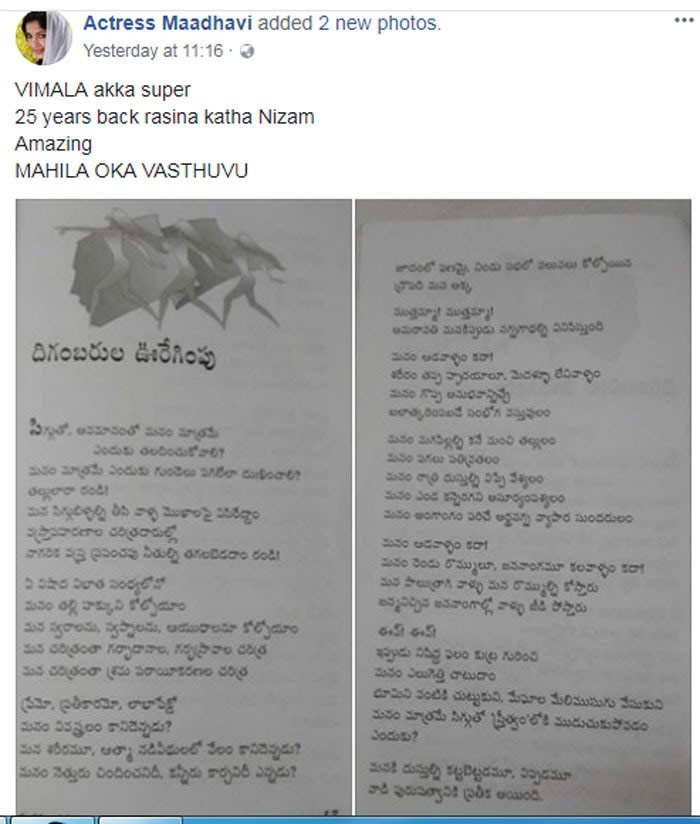 Actress Maadhavi added 2 new photos.
Yesterday at 11:16 ·
VIMALA akka super
25 years back rasina katha Nizam
Amazing
MAHILA OKA VASTHUVU
దిగంబరుల ఊరేగింపు
సిగ్గుతో, అవమానంతో మనం మాత్రమే
ఎందుకు తలదించుకోవాలి?
మనం మాత్రమే ఎందుకు గుండెలు పగిలేలా దుఃఖించాలి?
తల్లులారా రండి!
మన సిగ్గుబిళ్ళల్ని తీసి వాళ్ళ మొహాలపై విసిరేద్దాం
వస్త్రాపహరణాల చరిత్రదారుల్లో
నాగరిక వస్త్ర ప్రపంచపు నీతుల్ని తగలబెడదాం రండి!
ఏ విషాద విలాత సంధ్యలోనో
మనం తల్లి హక్కుని కోల్పోయాం
మన స్వరాలను, స్వప్నాలను, ఆయుధాలనూ కోల్పోయాం
మన చరిత్రంతా గర్భాదానాల, గర్భస్రావాల చరిత్ర
మన చరిత్రంతా శ్రమ పరాయీకరణల చరిత్ర
ప్రేమో, ప్రతీకారమో, లాభాపేక్షో
మనం వివస్త్రలం కానిదెన్నడు?
మన శరీరమూ, ఆత్మా నడివీధులలో వేలం కానిదెన్నడు?
మనం నెత్తురు చిందించనిదీ, కన్నీరు కార్చనిదీ ఎన్నడు?
జూదంలో ఫణమై, నిండు సభలో వలువలు కోల్పోయిన
ద్రౌపది మన అక్క
ముత్తమ్మా! ముత్తమ్మా!
అమరావతి మనకిప్పుడు నగ్నగాథల్ని వినిపిస్తుంది
మనం ఆడవాళ్ళం కదా!
శరీరం తప్ప హృదయాలూ, మెదళ్ళూ లేనివాళ్ళం
మనం గొప్ప అనుభవాన్నిచ్చే
బలాత్కరింపబడే సంభోగ వస్తువులం
మనం మగపిల్లల్ని కనే మంచి తల్లులం
మనం పగలు పతివ్రతలం
మనం రాత్రి దుస్తుల్ని విప్పే వేశ్యలం
మనం ఎండ కన్నెరగని అసూర్యంపశ్యలం
మనం అంగాంగం పరిచే అర్ధనగ్న వ్యాపార సుందరులం
మనం ఆడవాళ్ళం కదా!
మనం రెండు రొమ్ములూ, జననాంగమూ కలవాళ్ళం కదా!
మన పాలుత్రాగి వాళ్ళు మన రొమ్ముల్ని కోస్తారు
జన్మనిచ్చిన జననాంగాల్లో వాళ్ళు జీడి పోస్తారు
ఈవ్! ఈవ్!
ఇప్పుడు నిషిద్ధ ఫలం కుట్ర గురించి
మనం ఎలుగెత్తి చాటుదాం
భూమిని వంటికి చుట్టుకుని, మేఘాల మేలిముసుగు వేసుకుని
మనం మాత్రమే సిగ్గుతో 'స్త్రీత్వం'లోకి ముడుచుకుపోవడం
ఎందుకు?
మనకి దుస్తుల్ని కట్టబెట్టడమూ, విప్పడమూ
వాడి పురుషత్వానికి ప్రతీక అయింది.